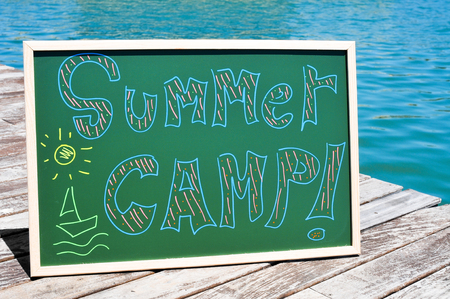 Summer
CAMP!